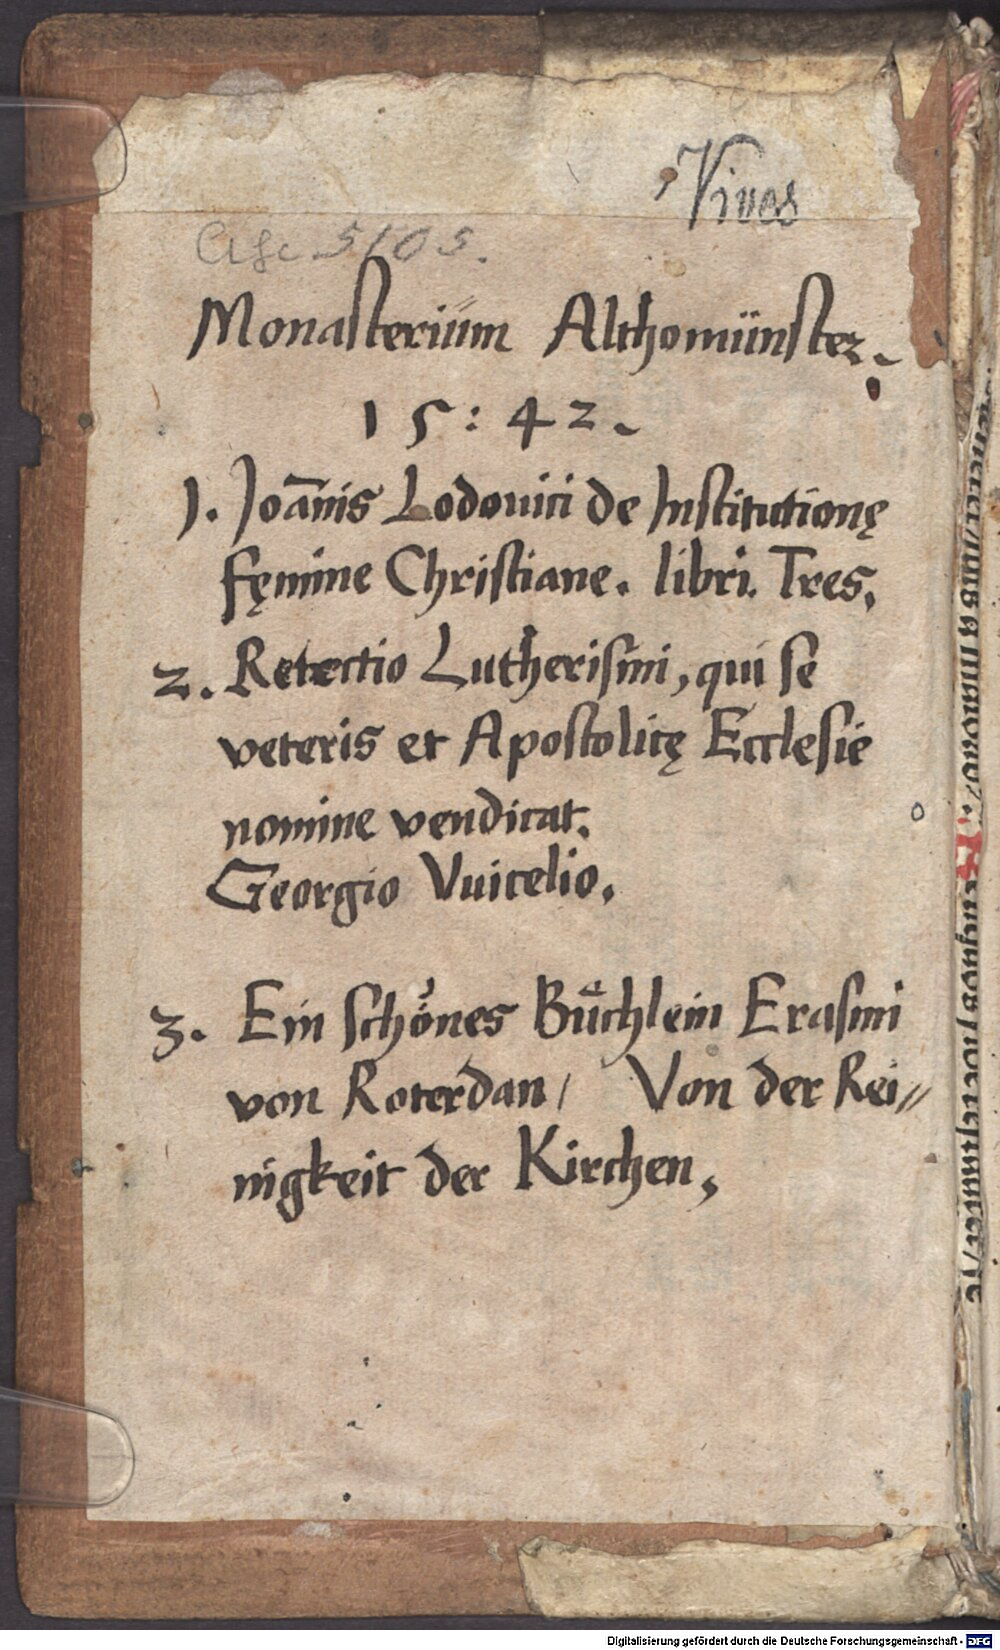 Vives
5105.
Monasterium Althomünster.
15:42.
1. Joānis Lodovici de Institutionę
fęmine Christiane. libri. Tres.
2. Retectio Lutherismi, qui se
veteris et Apostolicę Ecclesie
nomine vendicat.
Georgio Vuicelio.
3. Ein schönes Bůchlein Erasmi
von Roterdan / Von der Rei//
nigkeit der Kirchen,
Digitalisierung gefördert durch die Deutsche Forschungsgemeinschaft - DFG